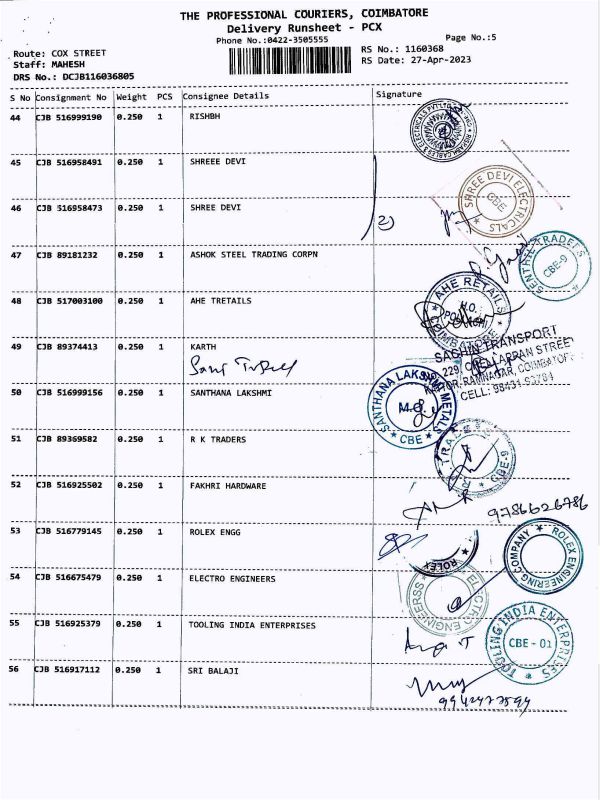 THE PROFESSIONAL COURIERS, COIMBATORE
Delivery Runsheet - PCX
Phone No.:0422-3505555
Page No.:5
Route: COX STREET
RS No.: 1160368
Staff: MAHESH
RS Date: 27-Apr-2023
DRS No.: DCJB116036805
S No Consignment No Weight PCS Consignee Details Signature
44 CJB 516999190 0.250 1 RISHBH
45 CJB 516958491 0.250 1 SHREEE DEVI
SHREE DEVI ELECTRICALS
CBE
46 CJB 516958473 0.250 1 SHREE DEVI
2)
47 CJB 89181232 0.250 1 ASHOK STEEL TRADING CORPN
SENTHIL TRADERS
CBE-9
48 CJB 517003100 0.250 1 AHE TRETAILS
AHE RETAILS
H.O.
POLLACHI
COIMBATORE
49 CJB 89374413 0.250 1 KARTH
SACHIN TRANSPORT
229, CHELLAPPAN STREET
KATOOR, RAMNAGAR, COIMBATORE
CELL: 98431 93784
50 CJB 516999156 0.250 1 SANTHANA LAKSHMI
SANTHANA LAKSHMI METALS
M.O
CBE
51 CJB 89369582 0.250 1 R K TRADERS
TRADERS
CBE-9
52 CJB 516925502 0.250 1 FAKHRI HARDWARE
9786626786
53 CJB 516779145 0.250 1 ROLEX ENGG
ROLEX
ROLEX ENGINEERING COMPANY
54 CJB 516675479 0.250 1 ELECTRO ENGINEERS
ELECTRO ENGINEERSS
55 CJB 516925379 0.250 1 TOOLING INDIA ENTERPRISES
TOOLING INDIA ENTERPRISES
CBE - 01
56 CJB 516917112 0.250 1 SRI BALAJI
9942477594